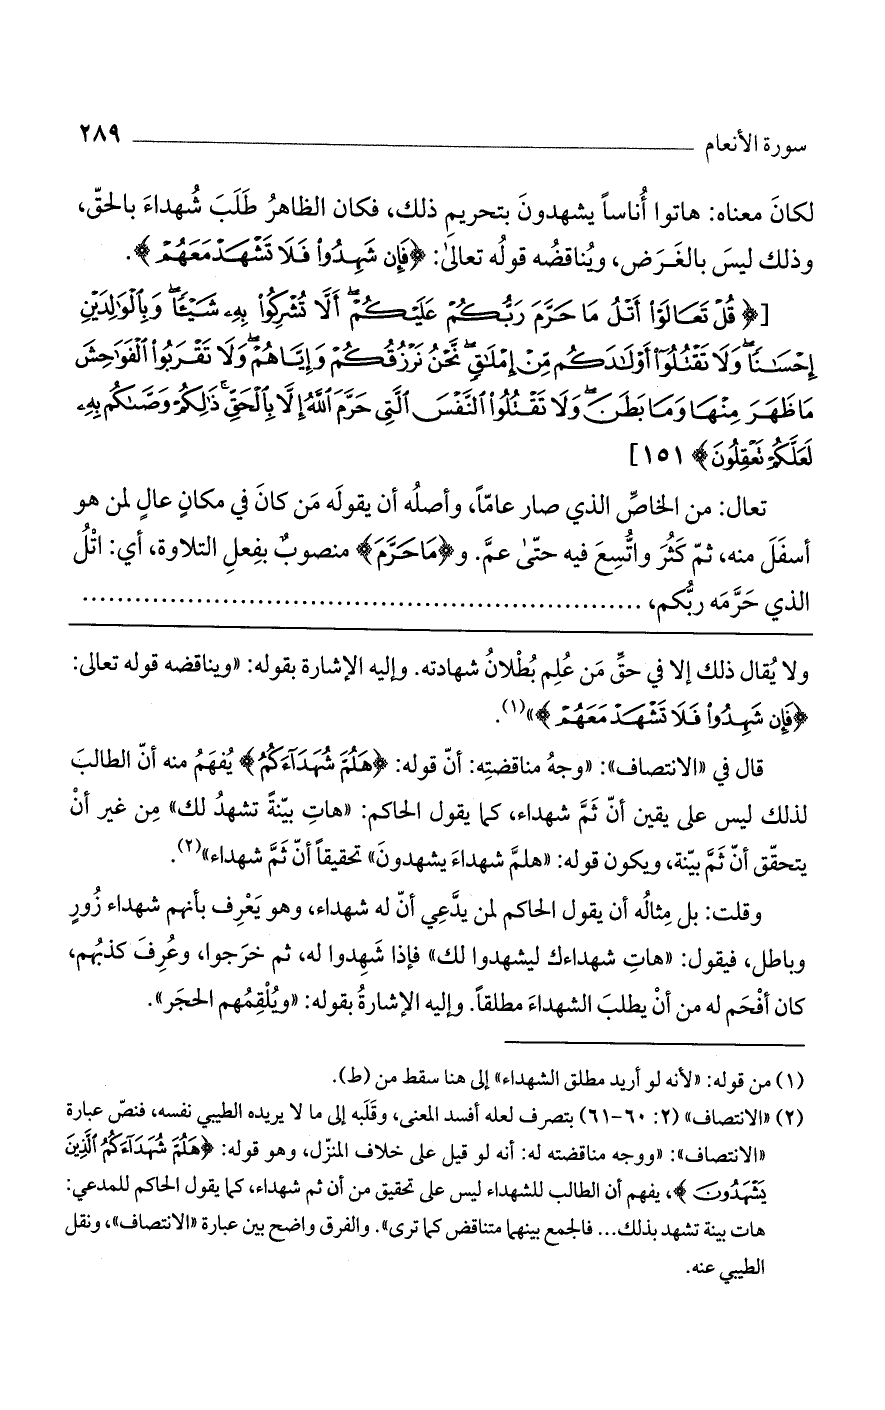 سورة الأنعام ٢٨٩
لكانَ معناه: هاتوا أُناساً يشهدونَ بتحريمِ ذلك، فكان الظاهرُ طَلَبَ شُهداءَ بالحقّ،
وذلك ليسَ بالغَرَض، ويُناقضُه قولُه تعالىٰ: ﴿فَإِن شَهِدُوا۟ فَلَا تَشْهَدْ مَعَهُمْ﴾.
[﴿قُلْ تَعَالَوْا۟ أَتْلُ مَا حَرَّمَ رَبُّكُمْ عَلَيْكُمْ ۖ أَلَّا تُشْرِكُوا۟ بِهِۦ شَيْـًٔا ۖ وَبِٱلْوَٰلِدَيْنِ
إِحْسَـٰنًا ۖ وَلَا تَقْتُلُوٓا۟ أَوْلَـٰدَكُم مِّنْ إِمْلَـٰقٍ ۖ نَّحْنُ نَرْزُقُكُمْ وَإِيَّاهُمْ ۖ وَلَا تَقْرَبُوا۟ ٱلْفَوَٰحِشَ
مَا ظَهَرَ مِنْهَا وَمَا بَطَنَ ۖ وَلَا تَقْتُلُوا۟ ٱلنَّفْسَ ٱلَّتِى حَرَّمَ ٱللَّهُ إِلَّا بِٱلْحَقِّ ۚ ذَٰلِكُمْ وَصَّىٰكُم بِهِۦ
لَعَلَّكُمْ تَعْقِلُونَ﴾ ١٥١]
تعال: من الخاصِّ الذي صار عامّاً، وأصلُه أن يقولَه مَن كانَ في مكانٍ عالٍ لمن هو
أسفَلَ منه، ثمّ كَثُرَ واتُّسِعَ فيه حتّىٰ عمَّ. و﴿مَا حَرَّمَ﴾ منصوبٌ بفِعلِ التلاوة، أي: اتْلُ
الذي حَرَّمَه ربُّكم، ................................................................
ولا يُقال ذلك إلا في حقِّ مَن عُلِم بُطْلانُ شهادته. وإليه الإشارة بقوله: «ويناقضه قوله تعالى:
﴿فَإِن شَهِدُوا۟ فَلَا تَشْهَدْ مَعَهُمْ﴾»(١).
قال في «الانتصاف»: «وجهُ مناقضتِه: أنّ قوله: ﴿هَلُمَّ شُهَدَآءَكُمُ﴾ يُفهَمُ منه أنّ الطالبَ
لذلك ليس على يقين أنّ ثَمَّ شهداء، كما يقول الحاكم: «هاتِ بيّنةً تشهدُ لك» مِن غير أنْ
يتحقّق أنّ ثَمَّ بيّنة، ويكون قوله: «هلمَّ شهداءَ يشهدونَ» تحقيقاً أنّ ثَمَّ شهداء»(٢).
وقلت: بل مِثالُه أن يقول الحاكم لمن يدَّعِي أنّ له شهداء، وهو يَعْرِف بأنهم شهداء زُورٍ
وباطل، فيقول: «هاتِ شهداءك ليشهدوا لك» فإذا شَهِدوا له، ثم خرَجوا، وعُرِفَ كذبُهم،
كان أفْحَم له من أنْ يطلبَ الشهداءَ مطلقاً. وإليه الإشارةُ بقوله: «ويُلْقِمُهم الحجَر».
(١) من قوله: «لأنه لو أريد مطلق الشهداء» إلى هنا سقط من (ط).
(٢) «الانتصاف» (٢: ٦٠-٦١) بتصرف لعله أفسد المعنى، وقلَبه إلى ما لا يريده الطيبي نفسه، فنصّ عبارة
«الانتصاف»: «ووجه مناقضته له: أنه لو قيل على خلاف المنزّل، وهو قوله: ﴿هَلُمَّ شُهَدَآءَكُمُ ٱلَّذِينَ
يَشْهَدُونَ﴾، يفهم أن الطالب للشهداء ليس على تحقيق من أن ثم شهداء، كما يقول الحاكم للمدعي:
هات بينة تشهد بذلك... فالجمع بينهما متناقض كما ترى». والفرق واضح بين عبارة «الانتصاف»، ونقل
الطيبي عنه.